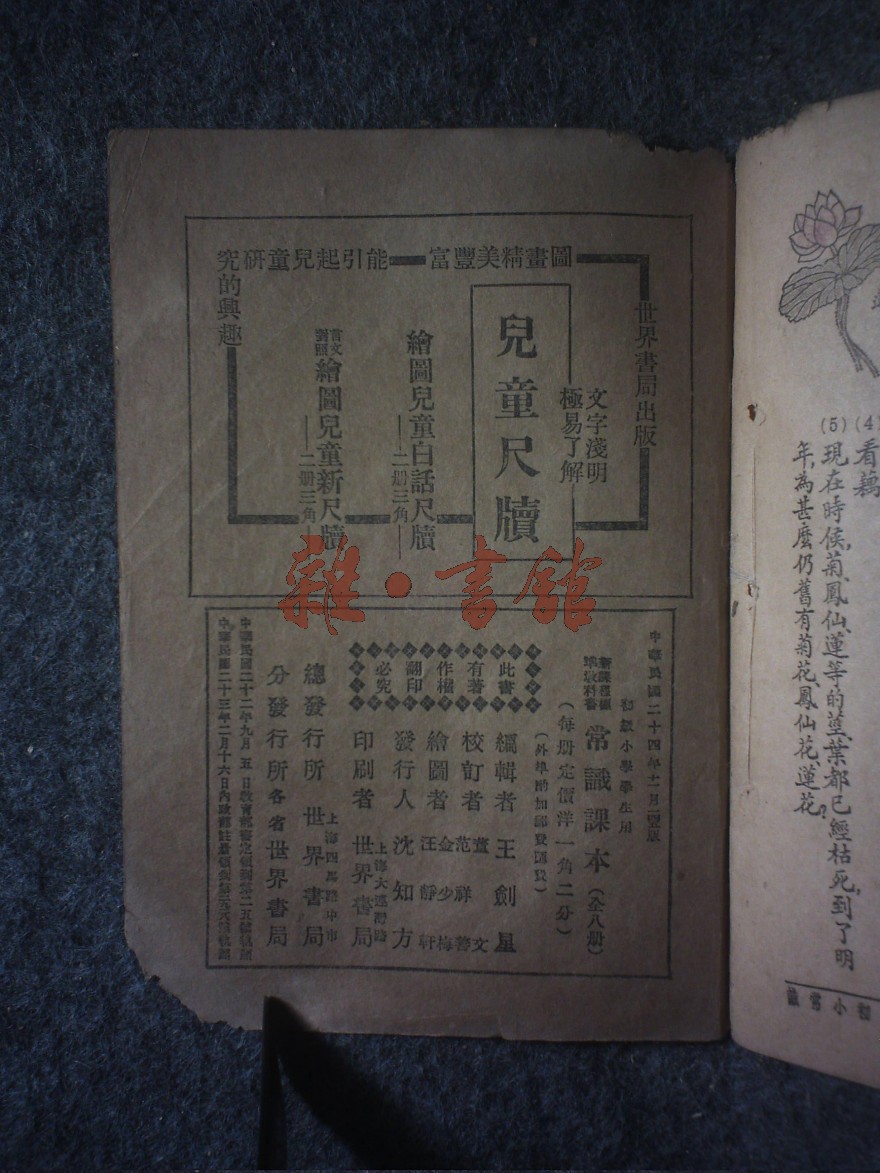 世界書局出版
圖畫精美豐富
能引起兒童研究的興趣
文字淺明
極易了解
兒童尺牘
繪圖兒童白話尺牘
二册三角
言文對照
繪圖兒童新尺牘
二册三角
雜·書館
中華民國二十四年十二月二壹版
初級小學學生用
新課程標準教科書
常識課本（全八册）
（每册定價洋一角二分）
（外埠酌加郵費匯費）
此書有著作權翻印必究
編輯者 王劍星
校訂者 董文 范祥善
繪圖者 金少梅 汪靜軒
發行人 沈知方
印刷者 上海大連灣路 世界書局
總發行所 上海四馬路中市 世界書局
分發行所 各省世界書局
中華民國二十二年九月五日教育部審定領到
中華民國二十三年二月十六日內政部註册領到
(4)
看藕
(5)
現在時候，菊、鳳仙、蓮等的莖、葉都已經枯死，到了明
年，為甚麼仍舊有菊花、鳳仙花、蓮花？
初小常識